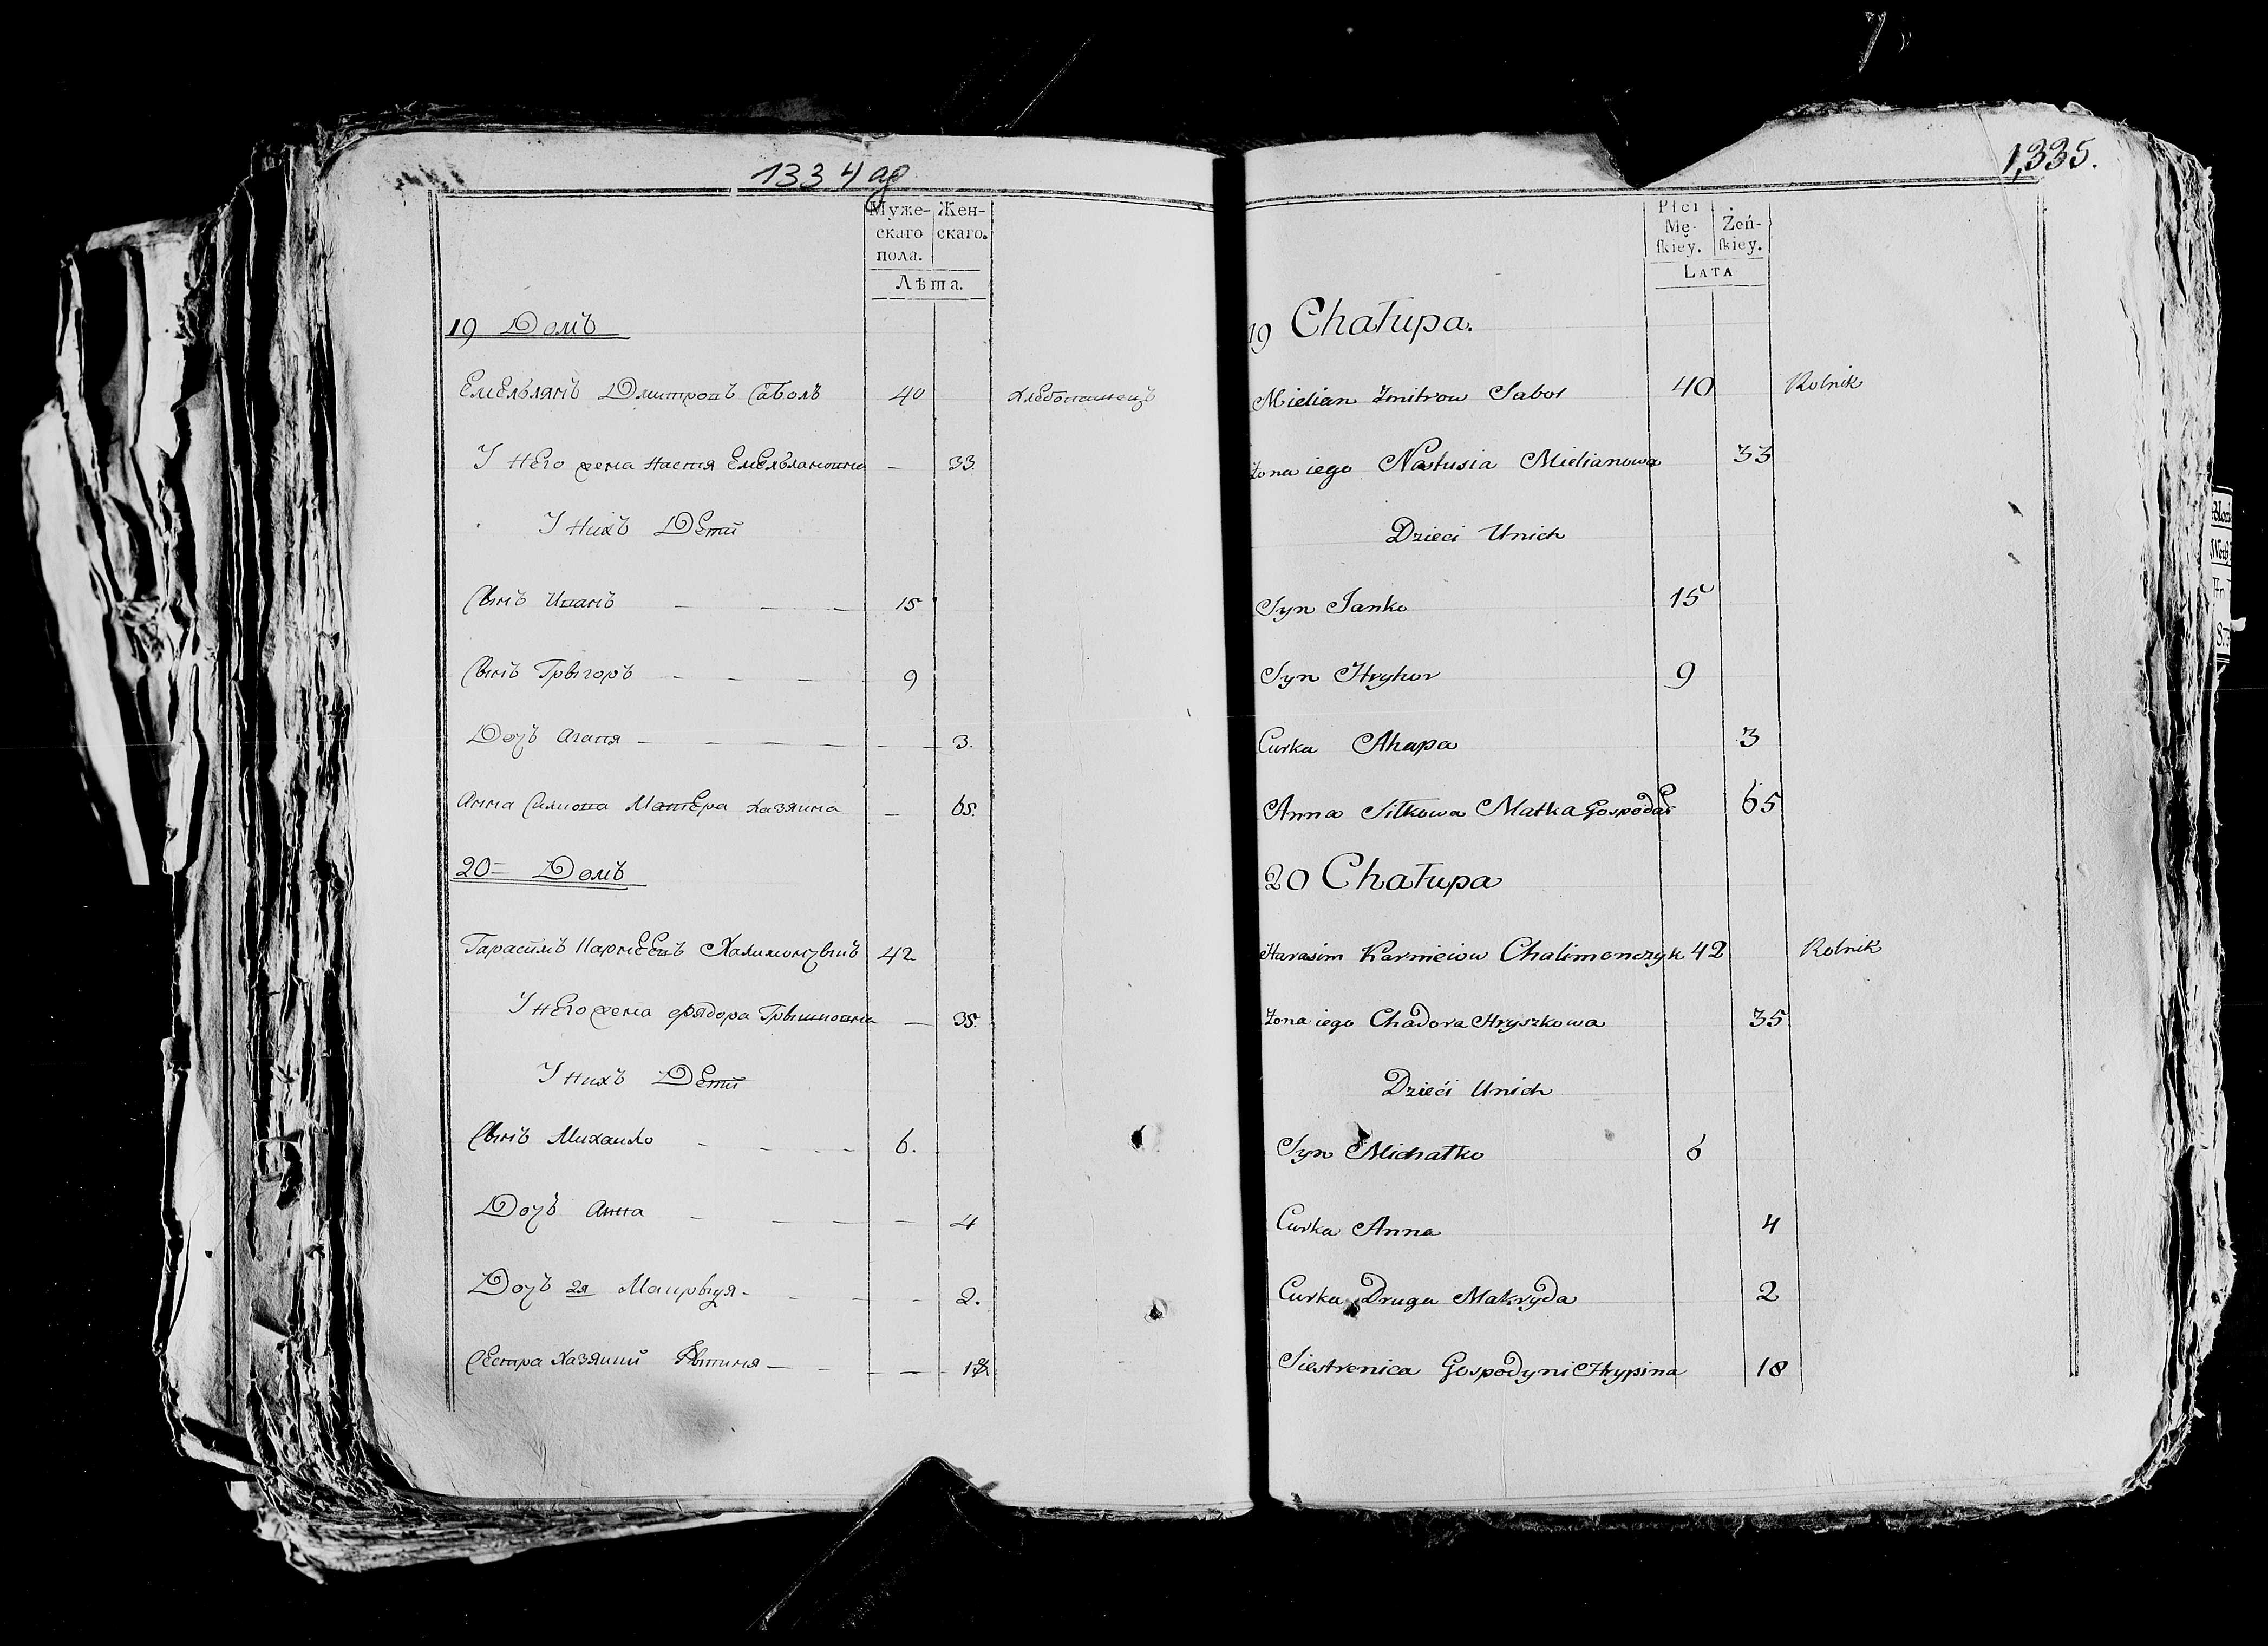 1334 ag
Муже-
скаго
пола.
Жен-
скаго.
Лѣта.
19 Домъ
Емельянъ Дмитровъ Саболъ 40 хлебопашецъ
У него жена Настя Емельяновна — 33.
У нихъ Дети
Сынъ Иванъ — — — 15
Сынъ Грыгоръ — — — 9
Дочъ Агапя — — — — — 3.
Анна Матера хазяина — 65.
20= Домъ
Гарасимъ Карнеевъ Халимончыкъ 42
У него жена Фядора Грышковна — 35.
У нихъ Дети
Сынъ Михалко — — — — 6.
Дочъ Анна — — — — 4
Дочъ 2я — — — — 2.
Сестра Хазяйки — — — — 18
7
1,335.
Płci
Mę-
ſkiéy.
Żeń-
ſkiey.
LATA
19 Chałupa.
Mielian Zmitrow Saboł 40 Rolnik
Żona iego Nastusia Mielianowa 33
Dzieci Unich
Syn Janko 15
Syn Hryhor 9
Curka Ahapa 3
Anna Siłkowa Matka Gospodar 65
20 Chałupa
Harasim Karnieiow Chalimonczyk 42 Rolnik
Żona iego Chadora Hryszkowa 35
Dzieći Unich
Syn Michałko 6
Curka Anna 4
Curka Druga Makryda 2
Siestrenica Gospodyni Hrypina 18